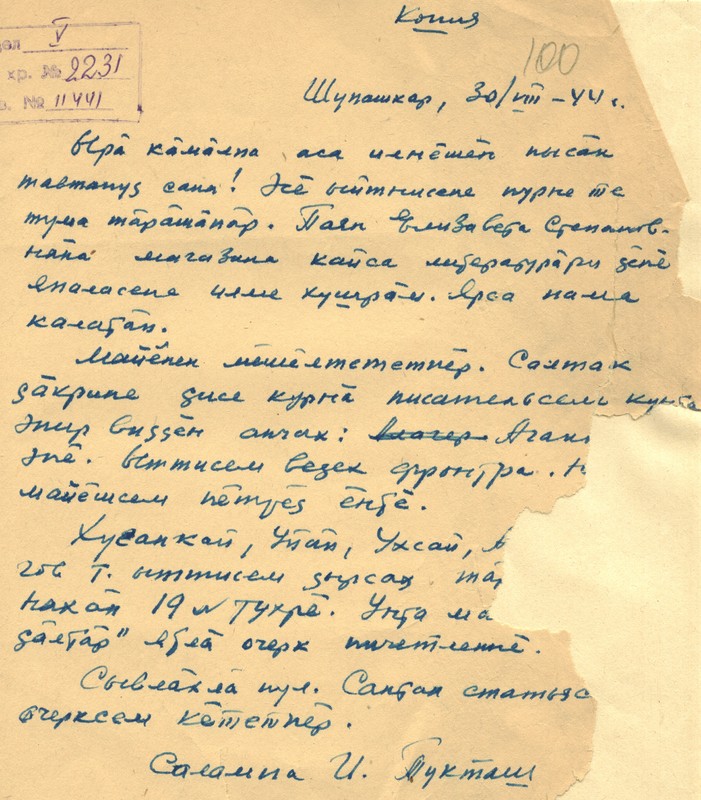 Копия
дел V
хр. № 2231
в. № 11441
100
Шупашкар, 30/VIII – 44 г.
Ырă кăмăлпа аса илнĕшĕн пысăк
тавтапуç сана! Эсĕ ыйтнисене пурне те
тума тăрăшăпăр. Паян Елизавета Степанов-
нăна магазина кайса литературăри çĕнĕ
япаласене илме хушрăм. Ярса пама
калатăн.
Майĕпен мĕшĕлтететпĕр. Салтак
çăкрине çисе курнă писательсем кунта
эпир виççĕн анчах:
эпĕ. Ыттисем веçех фронтра.
майĕшсем пĕтрĕç ĕнтĕ.
Хусанкай, Уйăп, Ухсай,
гов Т. ыттисем çырсах
нахăн 19 № тухрĕ. Унта
çăлтăр" ятлă очерк пичетленнĕ.
Сывлăхлă пул. Санран
очерксем кĕтетпĕр.
Салампа И. Тукташ